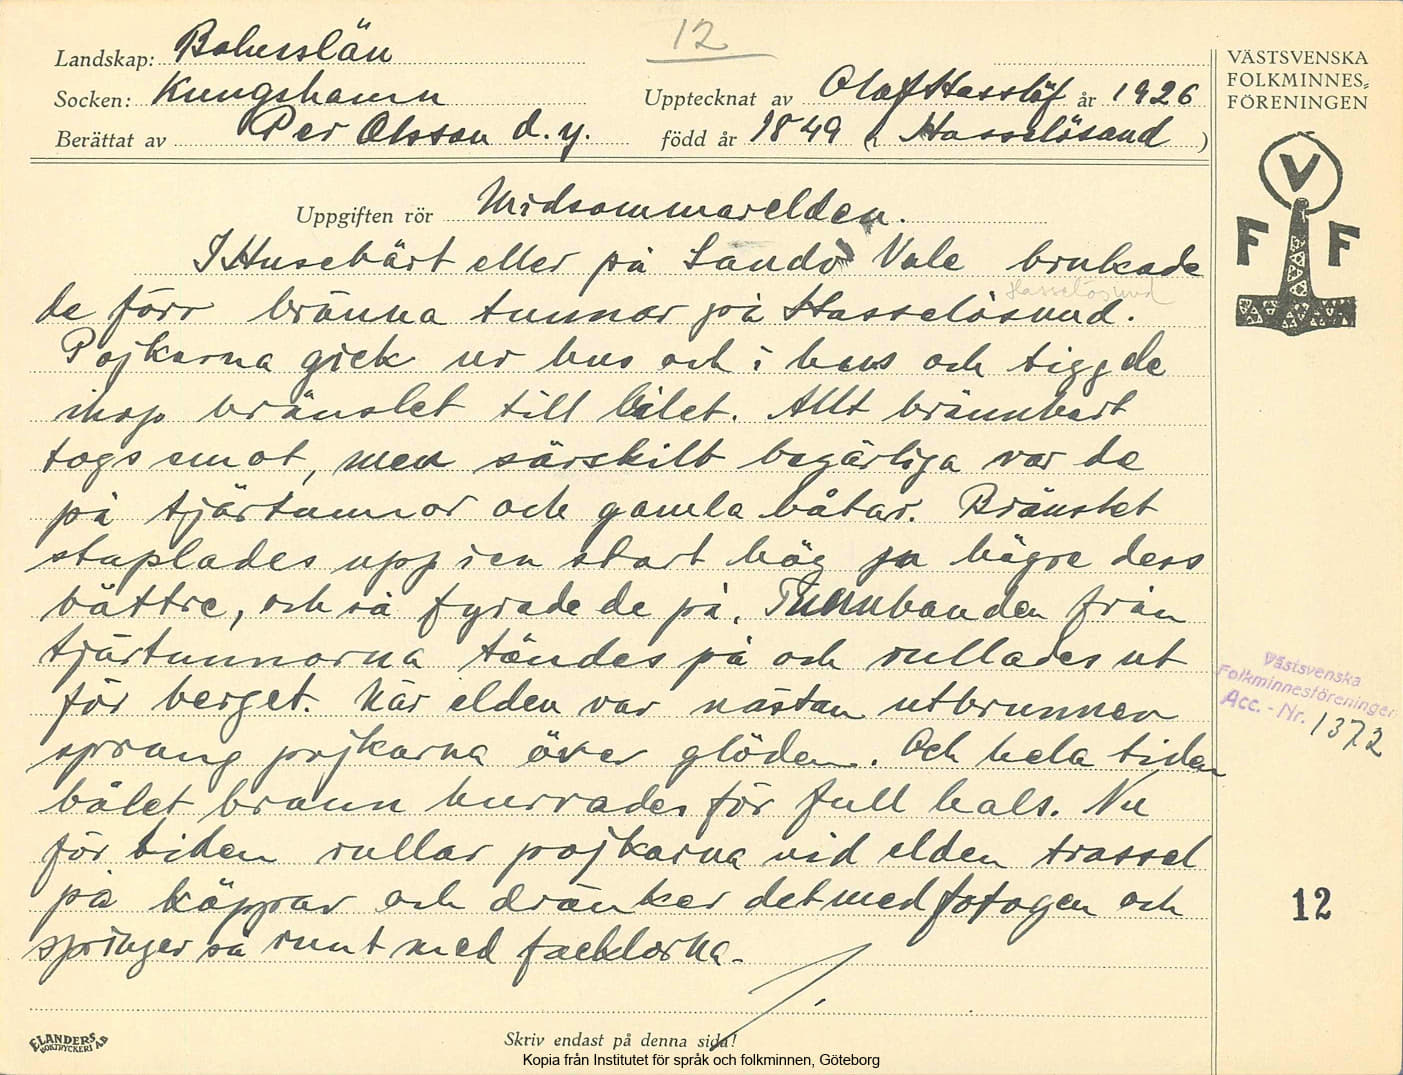 12
Landskap: Bohuslän
Socken: Kungshamn
Upptecknat av Olof Hasslöf år 1926
Berättat av Per Olsson d. y.
född år 1849 (i Hasselösund)
Uppgiften rör Midsommarelden.
I Husebärt eller på Sandö Vale brukade
Hasselösund
de förr bränna tunnor på Hasselösund.
Pojkarna gick ur hus och i hus och tiggde
ihop bränslet till bålet. Allt brännbart
togs emot, men särskilt begärliga var de
på tjärtunnor och gamla båtar. Bränslet
staplades upp i en stort hög ju högre dess
bättre, och så fyrade de på. Tunnbanden från
tjärtunnorna tändes på och rullades ut
för berget. När elden var nästan utbrunnen
sprang pojkarna över glöden. Och hela tiden
bålet brann hurrades för full hals. Nu
för tiden rullar pojkarna vid elden trassel
på käppar och dränker det med fotogen och
springer så runt med facklorna.
Skriv endast på denna sida!
ELANDERS
BOKTRYCKERI AB
VÄSTSVENSKA
FOLKMINNES-
FÖRENINGEN
V
F F
Västsvenska
Folkminnesföreningen
Acc. - Nr. 1372
12
Kopia från Institutet för språk och folkminnen, Göteborg